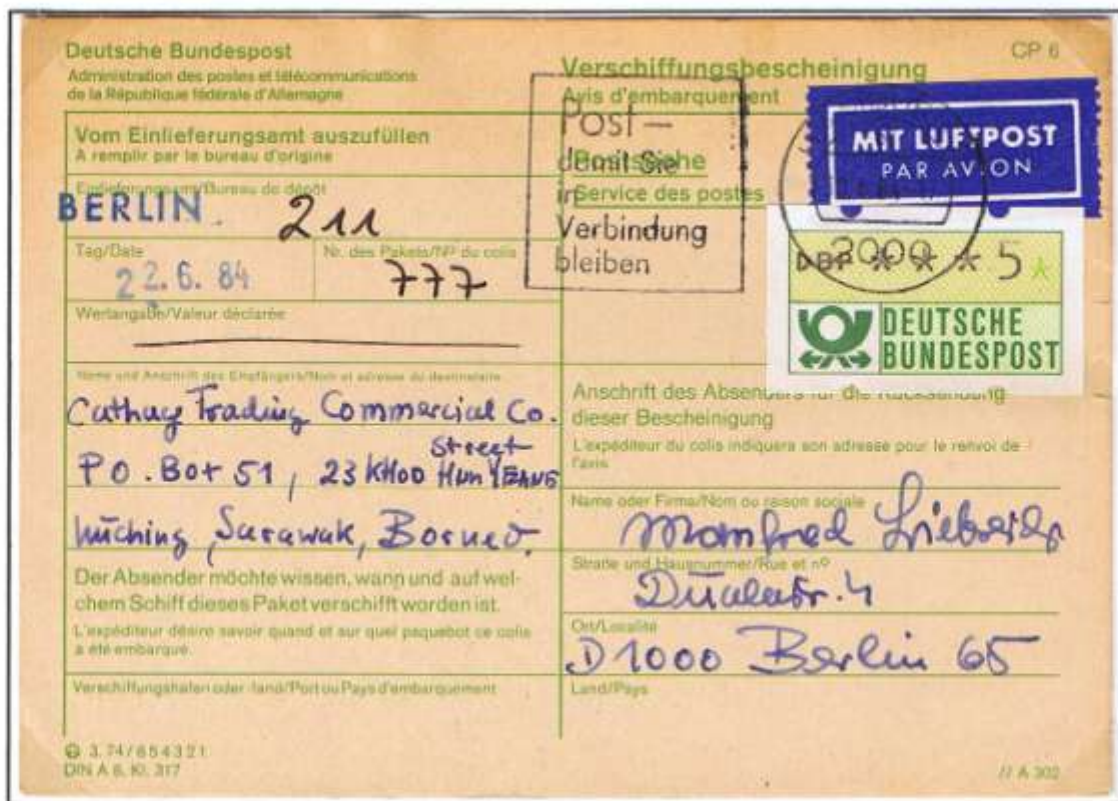 Deutsche Bundespost
Administration des postes et télécommunications
de la République fédérale d'Allemagne
CP 6
Verschiffungsbescheinigung
Avis d'embarquement
MIT LUFTPOST
PAR AVION
Vom Einlieferungsamt auszufüllen
A remplir par le bureau d'origine
Postsache
Service des postes
Post –
damit Sie
in
Verbindung
bleiben
2000
Einlieferungsamt/Bureau de dépôt
BERLIN 211
Tag/Date
22.6.84
Nr. des Pakets/Nº du colis
777
Wertangabe/Valeur déclarée
DBP * * * 5 *
DEUTSCHE
BUNDESPOST
Name und Anschrift des Empfängers/Nom et adresse du destinataire
Cathay Trading Commercial Co.
P O . Box 51 , 23 KHOO HUN YEANG
Street
Kuching , Sarawak, Borneo.
Der Absender möchte wissen, wann und auf wel-
chem Schiff dieses Paket verschifft worden ist.
L'expéditeur désire savoir quand et sur quel paquebot ce colis
a été embarqué.
Verschiffungshafen oder -land/Port ou Pays d'embarquement
Anschrift des Absenders für die Rücksendung
dieser Bescheinigung
L'expéditeur du colis indiquera son adresse pour le renvoi de
l'avis
Name oder Firma/Nom ou raison sociale
Manfred
Straße und Hausnummer/Rue et nº
Dualastr. 4
Ort/Localité
D 1000 Berlin 65
Land/Pays
3.74/654321
DIN A 6, Kl. 317
// A 302